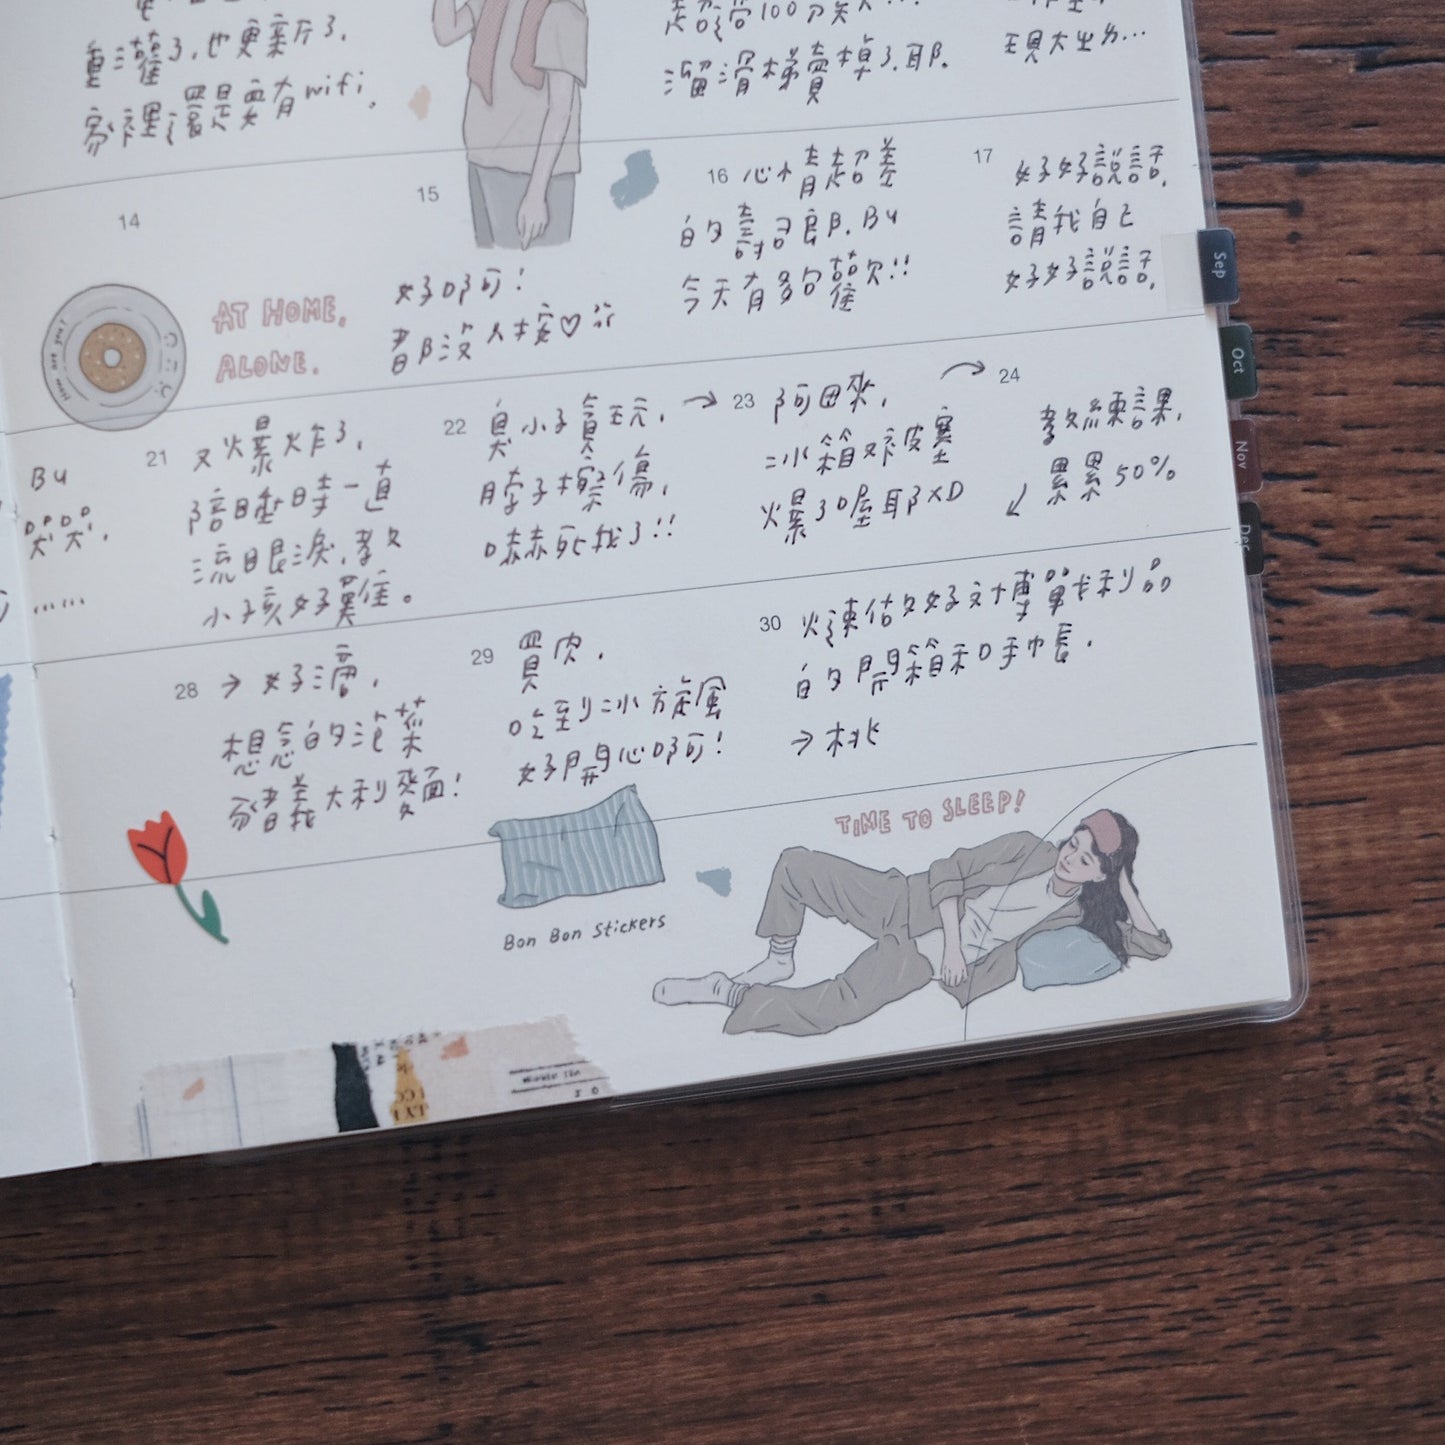 重灌了,也更新了,
家裡還是要有wifi。
溜滑梯賣掉了.耶.
現大出ㄉ…
14
AT HOME.
ALONE.
15
好啊!
都沒人接♡
16 心情超差
的討厭. Bu
今天有夠難欠!!
17 好好說話,
請我自己
好好說話.
Sep
Oct
Nov
Dec
Bu
哭哭,
……
21 又爆炸了,
陪睡時一直
流眼淚,教
小孩好難。
22 與小子負玩, →
脖子擦傷,
嚇死我了!!
23 阿田來,
冰箱又被塞
爆了喔耶XD
→ 24
教練課,
累累50%
↙
28 → 好滴,
想念的菠菜
豬義大利麵!
29 買肉,
吃到冰旋風
好開心啊!
30 火速佔好文博單卡利品
的開箱和手帳.
→ 桃
TIME TO SLEEP!
Bon Bon Stickers